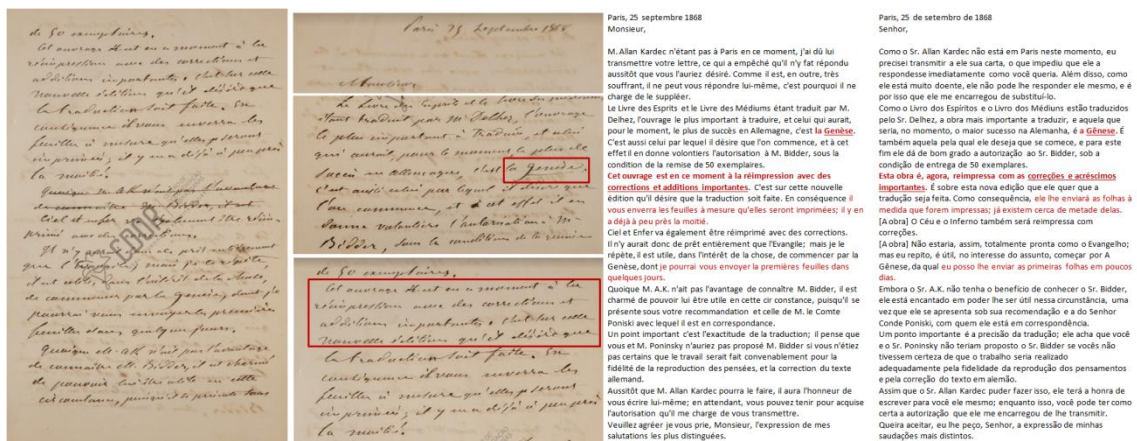 de 50 exemplaires.
Cet ouvrage étant en ce moment à la
réimpression avec des corrections et
additions importantes. C'est sur cette
nouvelle édition qu'il désire que
la traduction soit faite. En
conséquence il vous enverra les
feuilles à mesure qu'elles seront
imprimées; il y en a déjà à peu près
la moitié.
Paris 25 septembre 1868
Monsieur,
Le Livre des Esprits et le Livre des Médiums
étant traduit par M. Delhez, l'ouvrage
le plus important à traduire, et celui
qui aurait, pour le moment, le plus de
succès en Allemagne, c'est la Genèse.
C'est aussi celui par lequel il désire que
l'on commence, et à cet effet il en
donne volontiers l'autorisation à M.
Bidder, sous la condition de la remise
de 50 exemplaires.
Cet ouvrage étant en ce moment à la
réimpression avec des corrections et
additions importantes. C'est sur cette
nouvelle édition qu'il désire que
la traduction soit faite. En
conséquence il vous enverra les
feuilles à mesure qu'elles seront
imprimées; il y en a déjà à peu près
la moitié.
Paris, 25 septembre 1868
Monsieur,
M. Allan Kardec n'étant pas à Paris en ce moment, j'ai dû lui
transmettre votre lettre, ce qui a empêché qu'il n'y fat répondu
aussitôt que vous l'auriez désiré. Comme il est, en outre, très
souffrant, il ne peut vous répondre lui-même, c'est pourquoi il ne
charge de le suppléer.
Le Livre des Esprits et le Livre des Médiums étant traduit par M.
Delhez, l'ouvrage le plus important à traduire, et celui qui aurait,
pour le moment, le plus de succès en Allemagne, c'est la Genèse.
C'est aussi celui par lequel il désire que l'on commence, et à cet
effet il en donne volontiers l'autorisation à M. Bidder, sous la
condition de la remise de 50 exemplaires.
Cet ouvrage est en ce moment à la réimpression avec des
corrections et additions importantes. C'est sur cette nouvelle
édition qu'il désire que la traduction soit faite. En conséquence il
vous enverra les feuilles à mesure qu'elles seront imprimées; il y en
a déjà à peu près la motié.
Ciel et Enfer va également être réimprimé avec des corrections.
Il n'y aurait donc de prêt entièrement que l'Evangile; mais je le
répète, il est utile, dans l'intérêt de la chose, de commencer par la
Genèse, dont je pourrai vous envoyer la premières feuilles dans
quelques jours.
Quoique M. A.K. n'ait pas l'avantage de connaître M. Bidder, il est
charmé de pouvoir lui être utile en cette cir constance, puisqu'il se
présente sous votre recommandation et celle de M. le Comte
Poniski avec lequel il est en correspondance.
Un point important c'est l'exactitude de la traduction; il pense que
vous et M. Poninsky n'auriez pas proposé M. Bidder si vous n'étiez
pas certains que le travail serait fait convenablement pour la
fidélité de la reproduction des pensées, et la correction du texte
allemand.
Aussitôt que M. Allan Kardec pourra le faire, il aura l'honneur de
vous écrire lui-même; en attendant, vous pouvez tenir pour acquise
l'autorisation qu'il me charge de vous transmettre.
Veuillez agréer je vous prie, Monsieur, l'expression de mes
salutations les plus distinguées.
Paris, 25 de setembro de 1868
Senhor,
Como o Sr. Allan Kardec não está em Paris neste momento, eu
precisei transmitir a ele sua carta, o que impediu que ele a
respondesse imediatamente como você queria. Além disso, como
ele está muito doente, ele não pode lhe responder ele mesmo, e é
por isso que ele me encarregou de substituí-lo.
Como o Livro dos Espíritos e o Livro dos Médiuns estão traduzidos
pelo Sr. Delhez, a obra mais importante a traduzir, e aquela que
seria, no momento, o maior sucesso na Alemanha, é a Gênese. É
também aquela pela qual ele deseja que se comece, e para este
fim ele dá de bom grado a autorização ao Sr. Bidder, sob a
condição de entrega de 50 exemplares.
Esta obra é, agora, reimpressa com as correções e acréscimos
importantes. É sobre esta nova edição que ele quer que a
tradução seja feita. Como consequência, ele lhe enviará as folhas à
medida que forem impressas; já existem cerca de metade delas.
[A obra] O Céu e o Inferno também será reimpressa com
correções.
[A obra] Não estaria, assim, totalmente pronta como o Evangelho;
mas eu repito, é útil, no interesse do assunto, começar por A
Gênese, da qual eu posso lhe enviar as primeiras folhas em poucos
dias.
Embora o Sr. A.K. não tenha o benefício de conhecer o Sr. Bidder,
ele está encantado em poder lhe ser útil nessa circunstância, uma
vez que ele se apresenta sob sua recomendação e a do Senhor
Conde Poniski, com quem ele está em correspondência.
Um ponto importante é a precisão da tradução; ele acha que você
e o Sr. Poninsky não teriam proposto o Sr. Bidder se vocês não
tivessem certeza de que o trabalho seria realizado
adequadamente pela fidelidade da reprodução dos pensamentos
e pela correção do texto em alemão.
Assim que o Sr. Allan Kardec puder fazer isso, ele terá a honra de
escrever para você ele mesmo; enquanto isso, você pode ter como
certa a autorização que ele me encarregou de lhe transmitir.
Queira aceitar, eu lhe peço, Senhor, a expressão de minhas
saudações mais distintos.